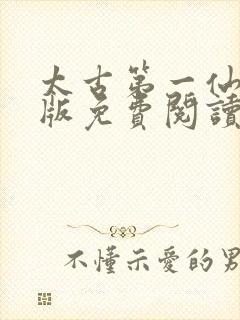 太古第一仙
版免費閱讀
不懂示愛的男